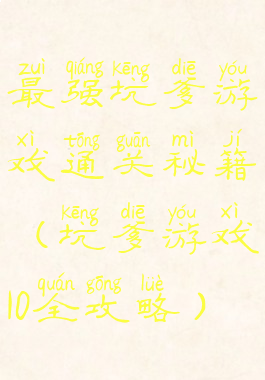 zuì qiáng kēng diē yóu
最强坑爹游
xì tōng guān mì jí
戏通关秘籍
kēng diē yóu xì
（坑爹游戏
quán gōng lüè
10全攻略）